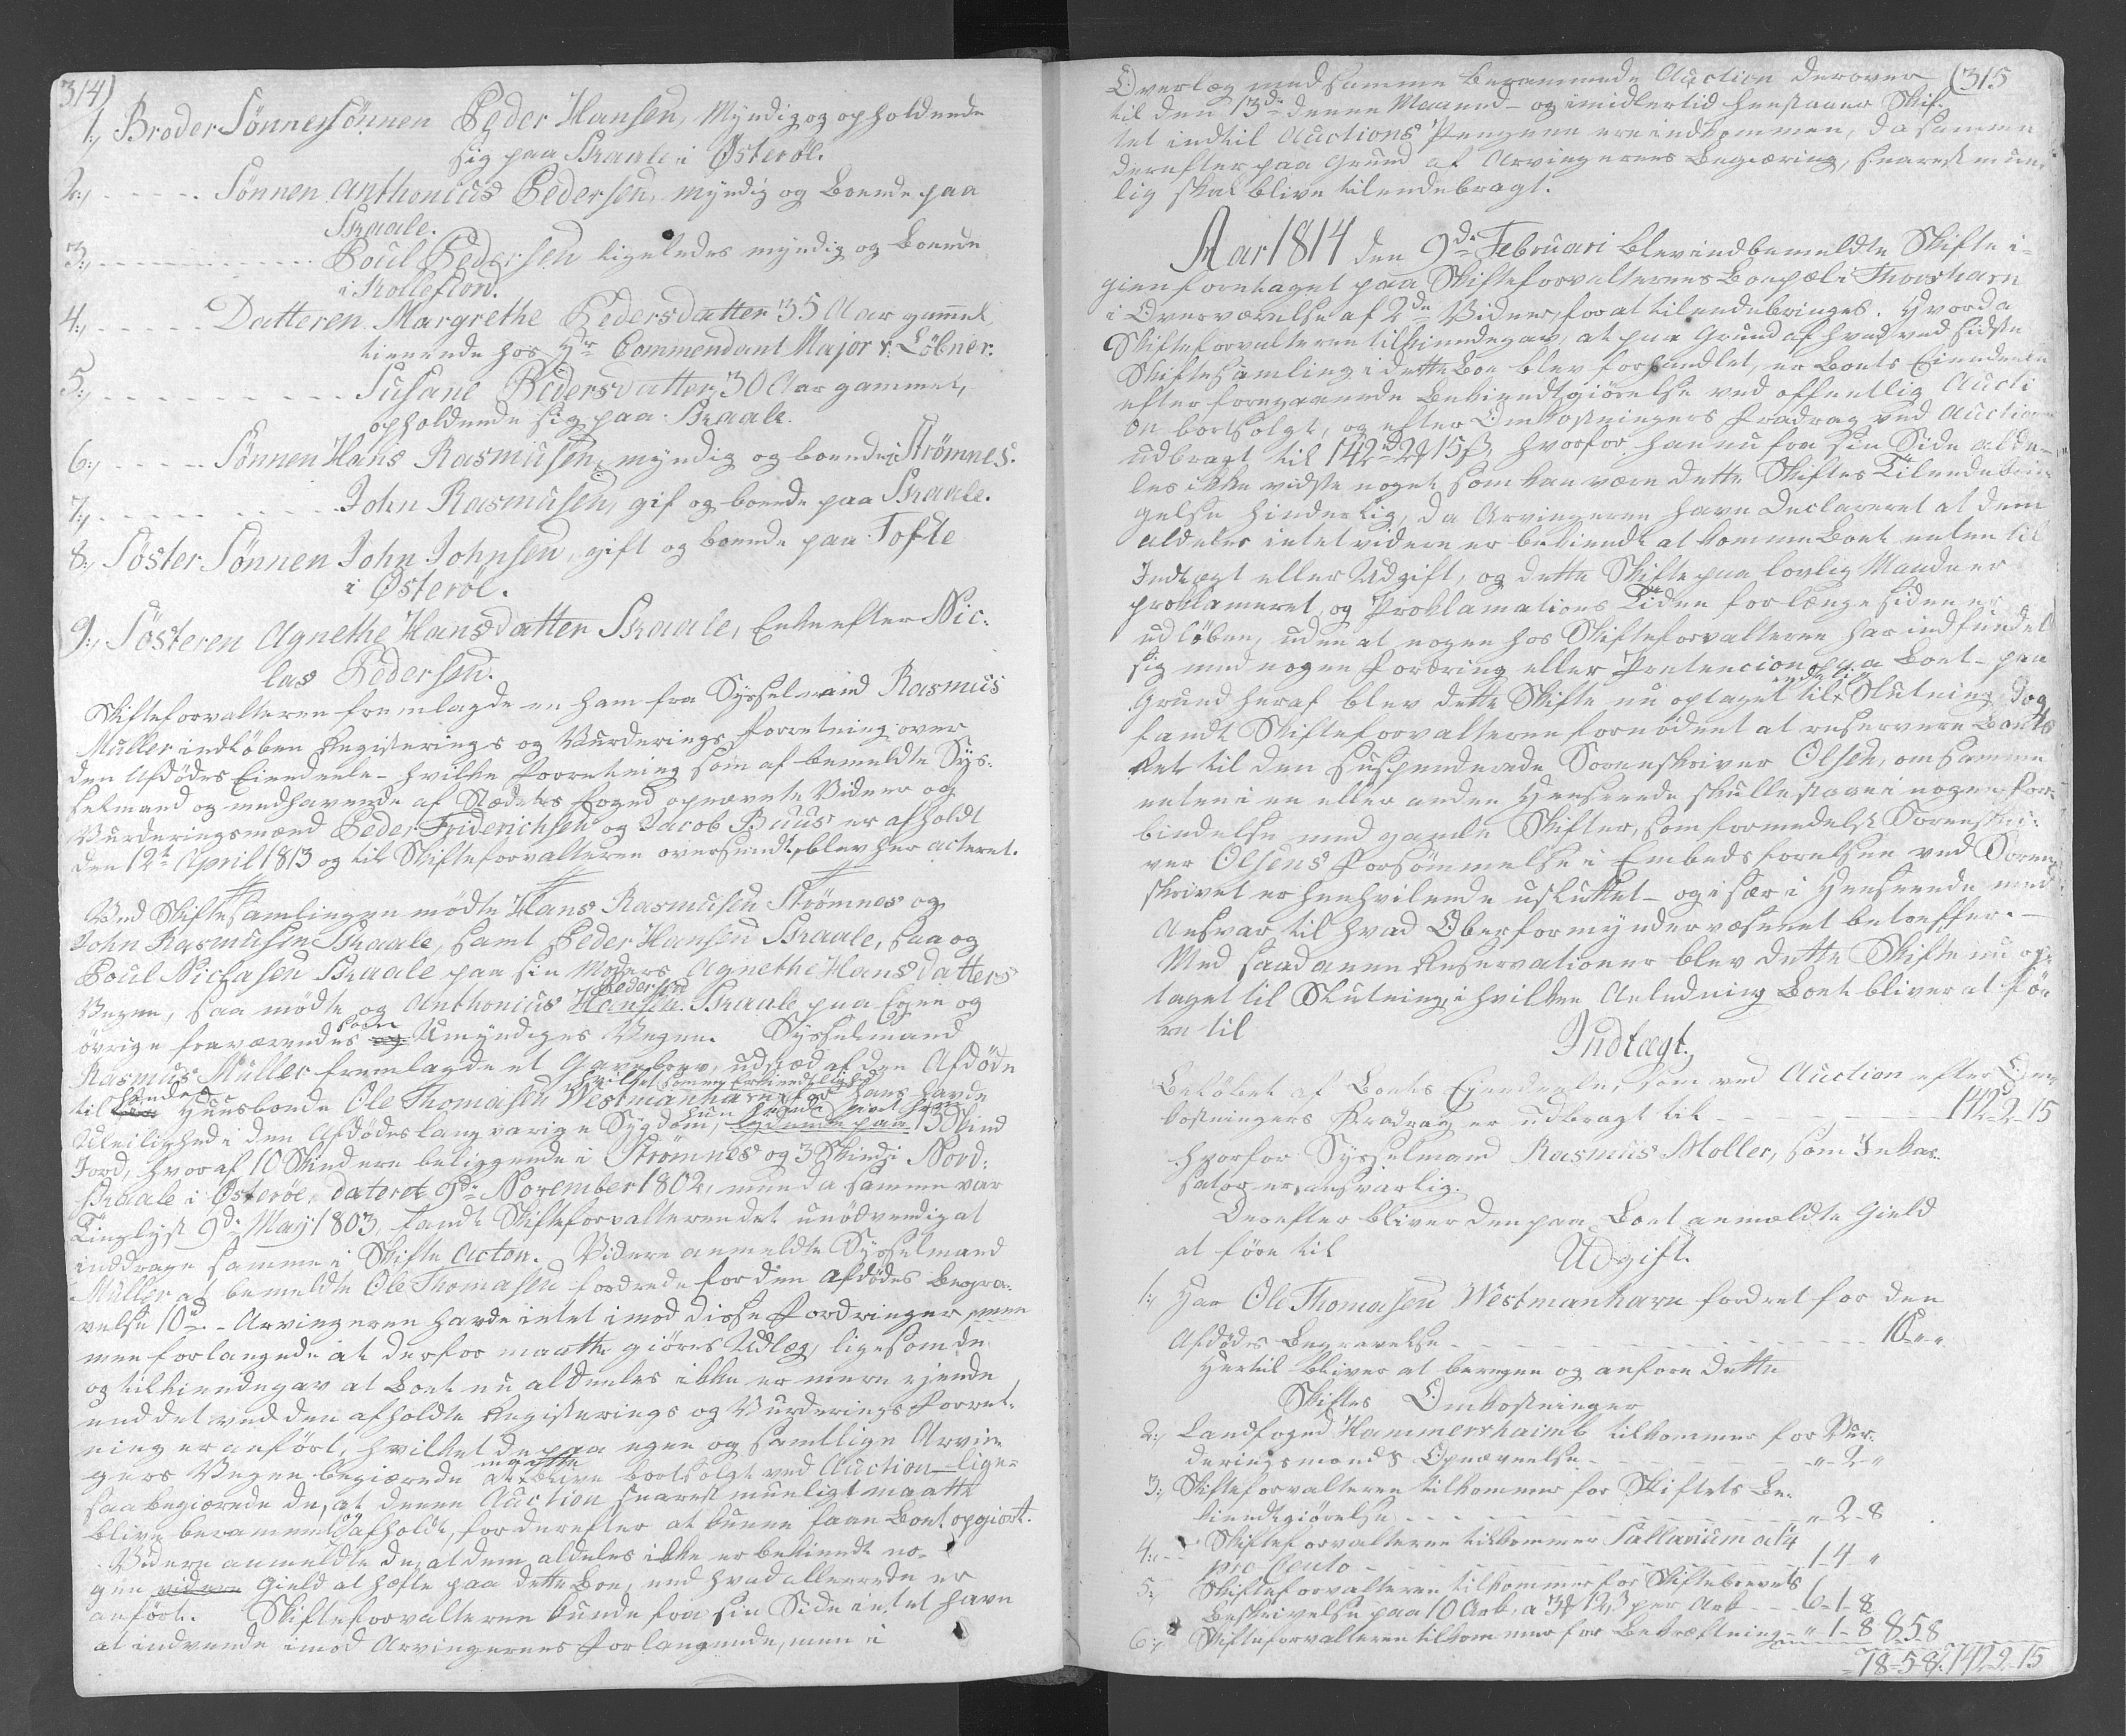 314)
1., Broder Sønnesønnen Peder Hansen, Myndig og opholdende
sig paa Skaale i Østerøe.
2., - - - - - Sønnen Anthonius Pedersen, myndig og boende paa
Skaale.
3., - - - - - - - - - - - Poul Pedersen ligeledes myndig og boende
i Kollefiord.
4., - - - - - Datteren Margrethe Pedersdatter 35 Aar gammel
tienende hos Hr Commendant Major v: Løbner.
5., - - - - - - - - - - Susane Pedersdatter, 30 Aar gammel,
opholdende sig paa Skaale.
6., - - - - - Sønnen Hans Rasmusen, myndig og boende i Strømnes.
7., - - - - - - - - - John Rasmusen, gift og boende paa Skaale.
8., Søster Sønnen John Johnsen, gift og boende paa Tofte
i Østerøe.
9., Søsteren Agnethe Hansdatter Skaale, Enke efter Nic:
las Pedersen.
Skifteforvalteren fremlagde en ham fra Sysselmand Rasmus
Müller indløben Registerings og Vurderings Forretning over
den Afdødes Eiendeele - hvilken Forretning som af bemeldte Sys:
selmand og medhavende af Stædets Foged opnævnte Vidner og
Vurderingsmænd Peder Friderichsen og Jacob Buus er afholdt
den 12te April 1813 og til Skifteforvalteren oversendt, blev her acteret.
Ved Skiftesamlingen mødte Hans Rasmusen Strømnes og
John Rasmusen Skaale, samt Peder Hansen Skaale, saa og
Poul Niclasen Skaale paa sin Moders Agnethe Hansdatters
Vegne, saa mødte og Anthonius Hansen Pedersen Skaale paa Egne og
øvrige fraværendes og som Umyndiges Vegne. Sysselmand
Rasmus Müller fremlagde et Gavebrev, udstæd af den Afdøde
til hendes Huusbonde Ole Thomasen Westmanhavn, hvilket som en Erkiendtlighed for hans havde
Uleilighed i den Afdødes langvarige Sygdom, hun havde givet ham lydende paa 13 Skind
Jord, hvoraf 10 Skind ere beliggende i Strømnes og 3 Skind i Nord:
Skaale i Østerøe, dateret 9de November 1802, men da samme var
Tinglyst 9de May 1803, fandt Skifteforvalteren det unødvendig at
inddrage samme i Skifte Acten. Videre anmeldte Sysselmand
Müller at bemeldte Ole Thomasen fordrede for den Afdødes Begra:
velse 10 rd - Arvingerne havde intet imod disse Fordringer, menn
men forlangede at derfor maatte giøres Udlæg, ligesom de
og tilkiendegav at Boet nu aldeeles ikke er mere ejende
end det ved den afholdte Registerings og Vurderings Forret:
ning er anført, hvilket de paa egne og samtlige Arvin
gers Vegne begiærede maatte blive bortsolgt ved Auction - lige-
saa begiærede de, at denne Auction snarest mueligt maatte
blive berammet og afholdt, for derefter at kunne faae Boet opgiort.
Videre anmeldte de, at dem aldeles ikke er bekiendt no-
gen videre Gield at hæfte paa dette Boe, end hvad allerede er
anført. Skifteforvalteren kunde fra sin Side intet have
at indvende imod Arvingernes Forlangende, men i
(315
Overlæg med samme berammede Auction derover
til den 13de denne Maaned - og imidlertid henstaaer Skif-
tet indtil Auctions Pengene ere indkommen, da samme
derefter paa Grund af Arvingernes Begiæring, snarest mue-
lig skal blive tilendebragt.
Aar 1814 den 9de Februari blev indbemeldte Skifte i-
gien foretaget paa Skifteforvalterens Boepæl i Thorshavn
i Overværelse af 2de Vidner, for at tilendebringes. Hvorda
Skifteforvalteren tilkiendegav, at paa Grund af hvad ved sidste
Skiftesamling i dette Boe blev forhandlet, er Boets Eiendeele
efter foregaaende Bekiendtgiørelse ved offentlig Aucti
on bortsolgt, og efter Omkostningers Fradrag ved Auctionen
udbragt til 142 rd 2 ȸ 15 ß, hvorfor han nu fra sin Side alde-
les ikke vidste noget som kan være dette Skiftes Tilendebrin-
gelse hinderlig, da Arvingerne have declareret at dem
aldeles intet videre er bekiendt at komme Boet enten til
Indtægt eller Udgift, og dette Skifte paa lovlig Maade er
proklameret, og Proklamations Tiden for længe siden er
udløben, uden at nogen hos Skifteforvalteren har indfundet
sig med nogen Fordring eller Pretencion paa Boet - paa
Grund heraf blev dette Skifte nu optaget til endelig Slutning, dog
fandt Skifteforvalteren fornødent at reservere Boets
Ret til den suspenderede Sorenskriver Olsen, om samme
enten i en eller anden Henseende skulle staae i nogen For-
bindelse med gamle Skifter, som formedelst Sorenskri-
ver Olsens Forsømmelse i Embeds førelsen ved Soren
skriveriet er henhvilende usluttet - og især i Henseende med
Ansvar til hvad Oberformyndervæsenet betræffer. -
Med saadanne Reservationer blev dette Skifte nu op-
taget til Slutning, i hvilken Anledning Boet bliver at fø-
re til
Indtægt.
Beløbet af Boets Eiendeele, som ved Auction efter Om-
kostningers Fradrag er udbragt til - - - - - - - 142 rd 2 - 15
hvorfor Sysselmand Rasmus Møller, som Inkas-
sator er ansvarlig.
Derefter bliver den paa Boet anmeldte Gield
at føre til
Udgift.
1., Har Ole Thomasen Westmanhavn fordret for den
Afdødes Begravelse - - - - - - - - - - 10 " "
Hertil bliver at beregne og anføre dette
Skiftes Omkostninger
2., Landfoged Hammershaimb tilkommer for Vur-
deringsmænds Opnævnelse - - - - - - - " 2 "
3., Skifteforvalteren tilkommer for Skiftets Be-
kiendtgiørelse - - - - - - - - - - " 2 - 8
4., - - Skifteforvalteren tilkommer Sallarium a 1/4
pro Cento - - - - - - - - - 1 - 4 - "
5., Skifteforvalteren tilkommer for Skiftebrevets
Beskrivelse paa 10 Ark, a 3 ȸ 12 ß per Ark - - - 6 - 1 - 8
6., Skifteforvalteren tilkommer for Bekræftning - " 1 - 8 8 5 8
18 - 5 - 8. 142 2 - 15